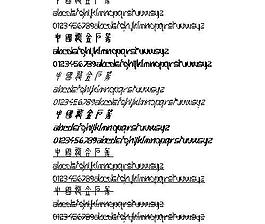 中國龍金石篆
abcdefghijklmnopqrstuvwxyz
0123456789abcdefghijklmnopqrstuvwxyz
中國龍金石篆
abcdefghijklmnopqrstuvwxyz
0123456789abcdefghijklmnopqrstuvwxyz
中國龍金石篆
abcdefghijklmnopqrstuvwxyz
0123456789abcdefghijklmnopqrstuvwxyz
中國龍金石篆
abcdefghijklmnopqrstuvwxyz
0123456789abcdefghijklmnopqrstuvwxyz
中國龍金石篆
abcdefghijklmnopqrstuvwxyz
0123456789abcdefghijklmnopqrstuvwxyz
中國龍金石篆
abcdefghijklmnopqrstuvwxyz
0123456789abcdefghijklmnopqrstuvwxyz